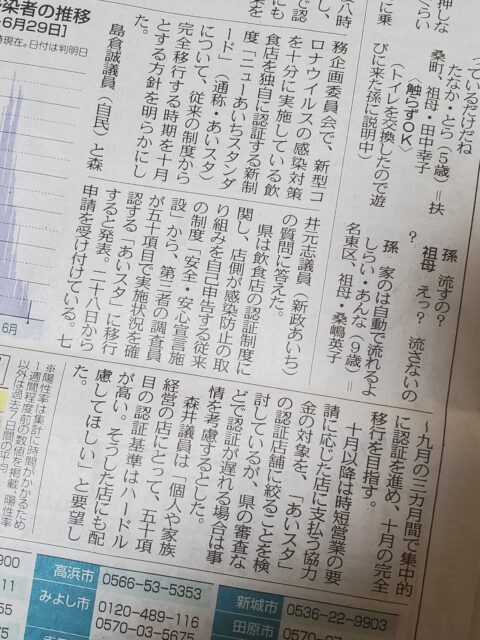 押しな
くらい
に乗
っているだけだね
たなか・とら（５歳）＝扶
桑町、祖母・田中幸子
〈触らずＯＫ〉
（トイレを交換したので遊
びに来た孫に説明中）
孫　流すの？
祖母　えっ？　流さないの
？
孫　家のは自動で流れるよ
しらい・あんな（９歳）＝
名東区、祖母・桑嶋英子
八時
で認
にも
し、
務企画委員会で、新型コ
ロナウイルスの感染対策
を十分に実施している飲
食店を独自に認証する新制
度「ニューあいちスタンダ
ード」（通称・あいスタ）
について、従来の制度から
完全移行する時期を十月
とする方針を明らかにし
た。
島倉誠議員（自民）と森
井元志議員（新政あいち）
の質問に答えた。
県は飲食店の認証制度に
関し、店側が感染防止の取
り組みを自己申告する従来
の制度「安全・安心宣言施
設」から、第三者の調査員
が五十項目で実施状況を確
認する「あいスタ」に移行
すると発表。二十八日から
申請を受け付けている。七
〜九月の三カ月間で集中的
に認証を進め、十月の完全
移行を目指す。
十月以降は時短営業の要
請に応じた店に支払う協力
金の対象を、「あいスタ」
の認証店舗に絞ることを検
討しているが、県の審査な
どで認証が遅れる場合は事
情を考慮するとした。
森井議員は「個人や家族
経営の店にとって、五十項
目の認証基準はハードル
が高い。そうした店にも配
慮してほしい」と要望し
た。
染者の推移
6月29日]
時現在。日付は判明日
6月
※陽性率は集計に時間がかかるため
一週間程度前の数値を掲載。陽性率
以外は過去7日間の平均
高浜市 0566-53-5353
みよし市 0120-489-116
0570-03-5675
新城市 0536-22-9903
田原市